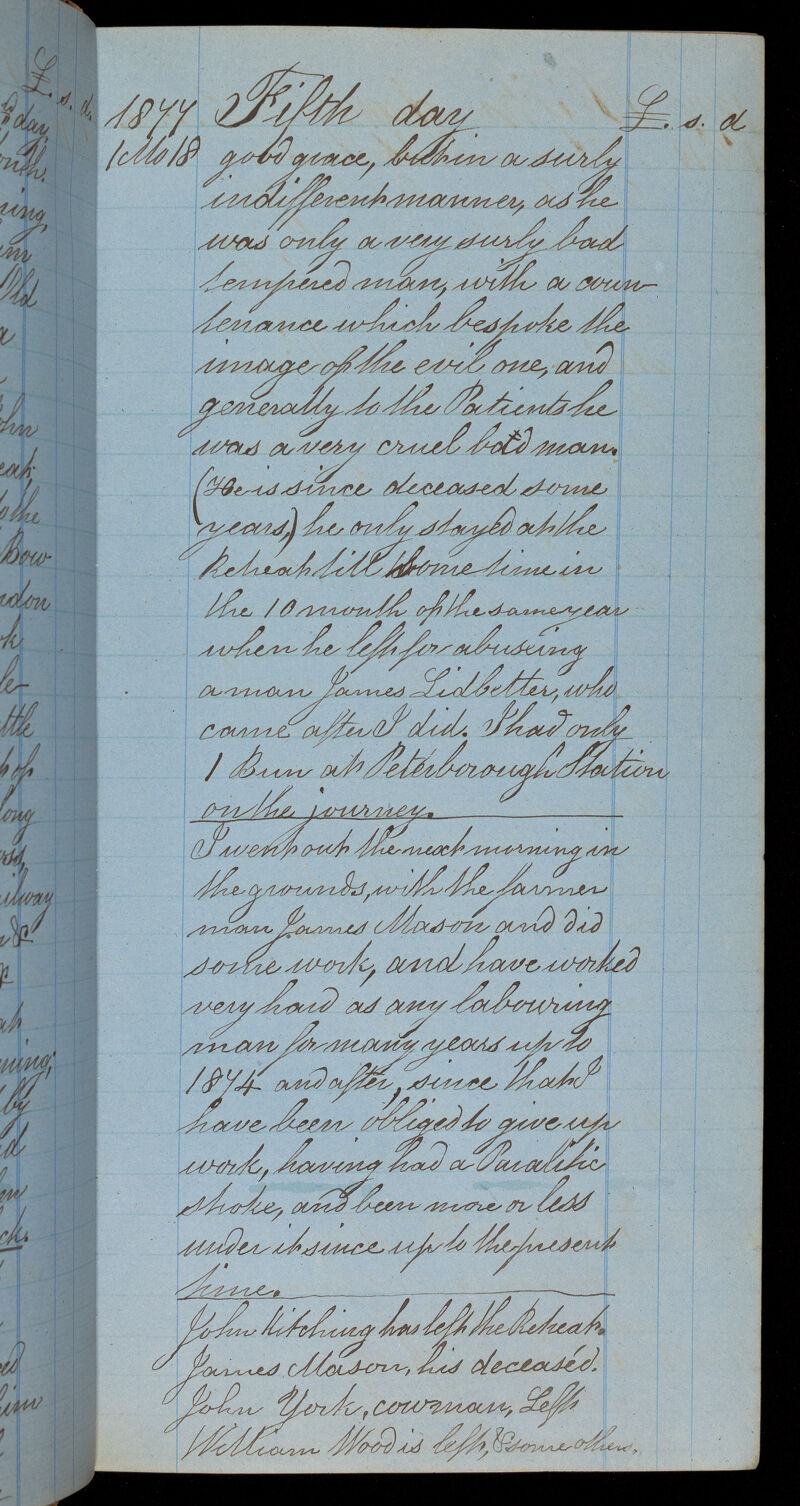 £. s. d.
1877 Fifth day £. s. d
1 Mo 18 good grace, but in a surly
indifferent manner, as he
was only a very surly bad
tempered man, with a coun-
tenance which bespoke the
image of the evil one, and
generally to the Patients he
was a very cruel bad man.
(He is since deceased some
years,) he only stayed at the
Retreat till some time in
the 10 month of the same year
when he left for abuseing
a man James Lidbetter, who
came after I did. I had only
1 Bun at Peterborough Station
on the journey.
I went out the next morning in
the grounds, with the farmer
man James Mason and did
some work, and have worked
very hard as any labouring
man for many years up to
1874 and after, since that I
have been obliged to give up
work, having had a Paralitic
stroke, and been more or less
under it since up to the present
time.
John Kitching has left the Retreat.
James Mason, his deceased.
John York, cowman, Left
William Wood is left, & some others.